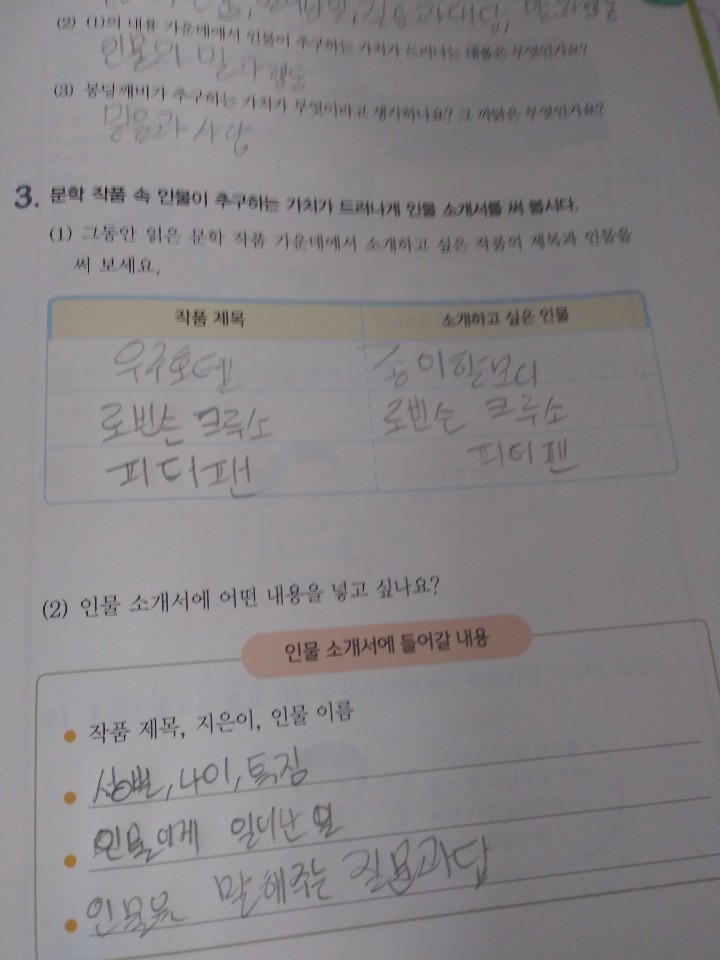 질문과 대답, 말과 행동
(2) (1)의 내용 가운데에서 인물이 추구하는 가치가 드러나는 내용은 무엇인가요?
인물의 말과 행동
(3) 몽당깨비가 추구하는 가치가 무엇이라고 생각하나요? 그 까닭은 무엇인가요?
믿음과 사랑
3. 문학 작품 속 인물이 추구하는 가치가 드러나게 인물 소개서를 써 봅시다.
(1) 그동안 읽은 문학 작품 가운데에서 소개하고 싶은 작품의 제목과 인물을
써 보세요.
작품 제목 소개하고 싶은 인물
우주호텔 종이할머니
로빈슨 크루소 로빈슨 크루소
피터팬 피터팬
(2) 인물 소개서에 어떤 내용을 넣고 싶나요?
인물 소개서에 들어갈 내용
작품 제목, 지은이, 인물 이름
성별, 나이, 특징
인물에게 일어난 일
인물을 말해주는 질문과 답